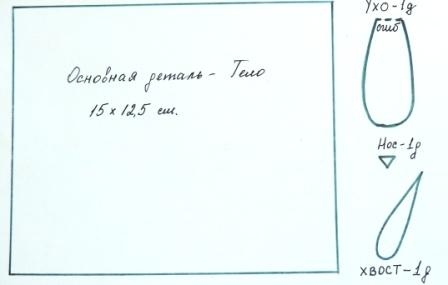 Основная деталь - Тело
15 х 12,5 см.
Ухо-1д
сгиб
Нос-1д
ХВОСТ-1д